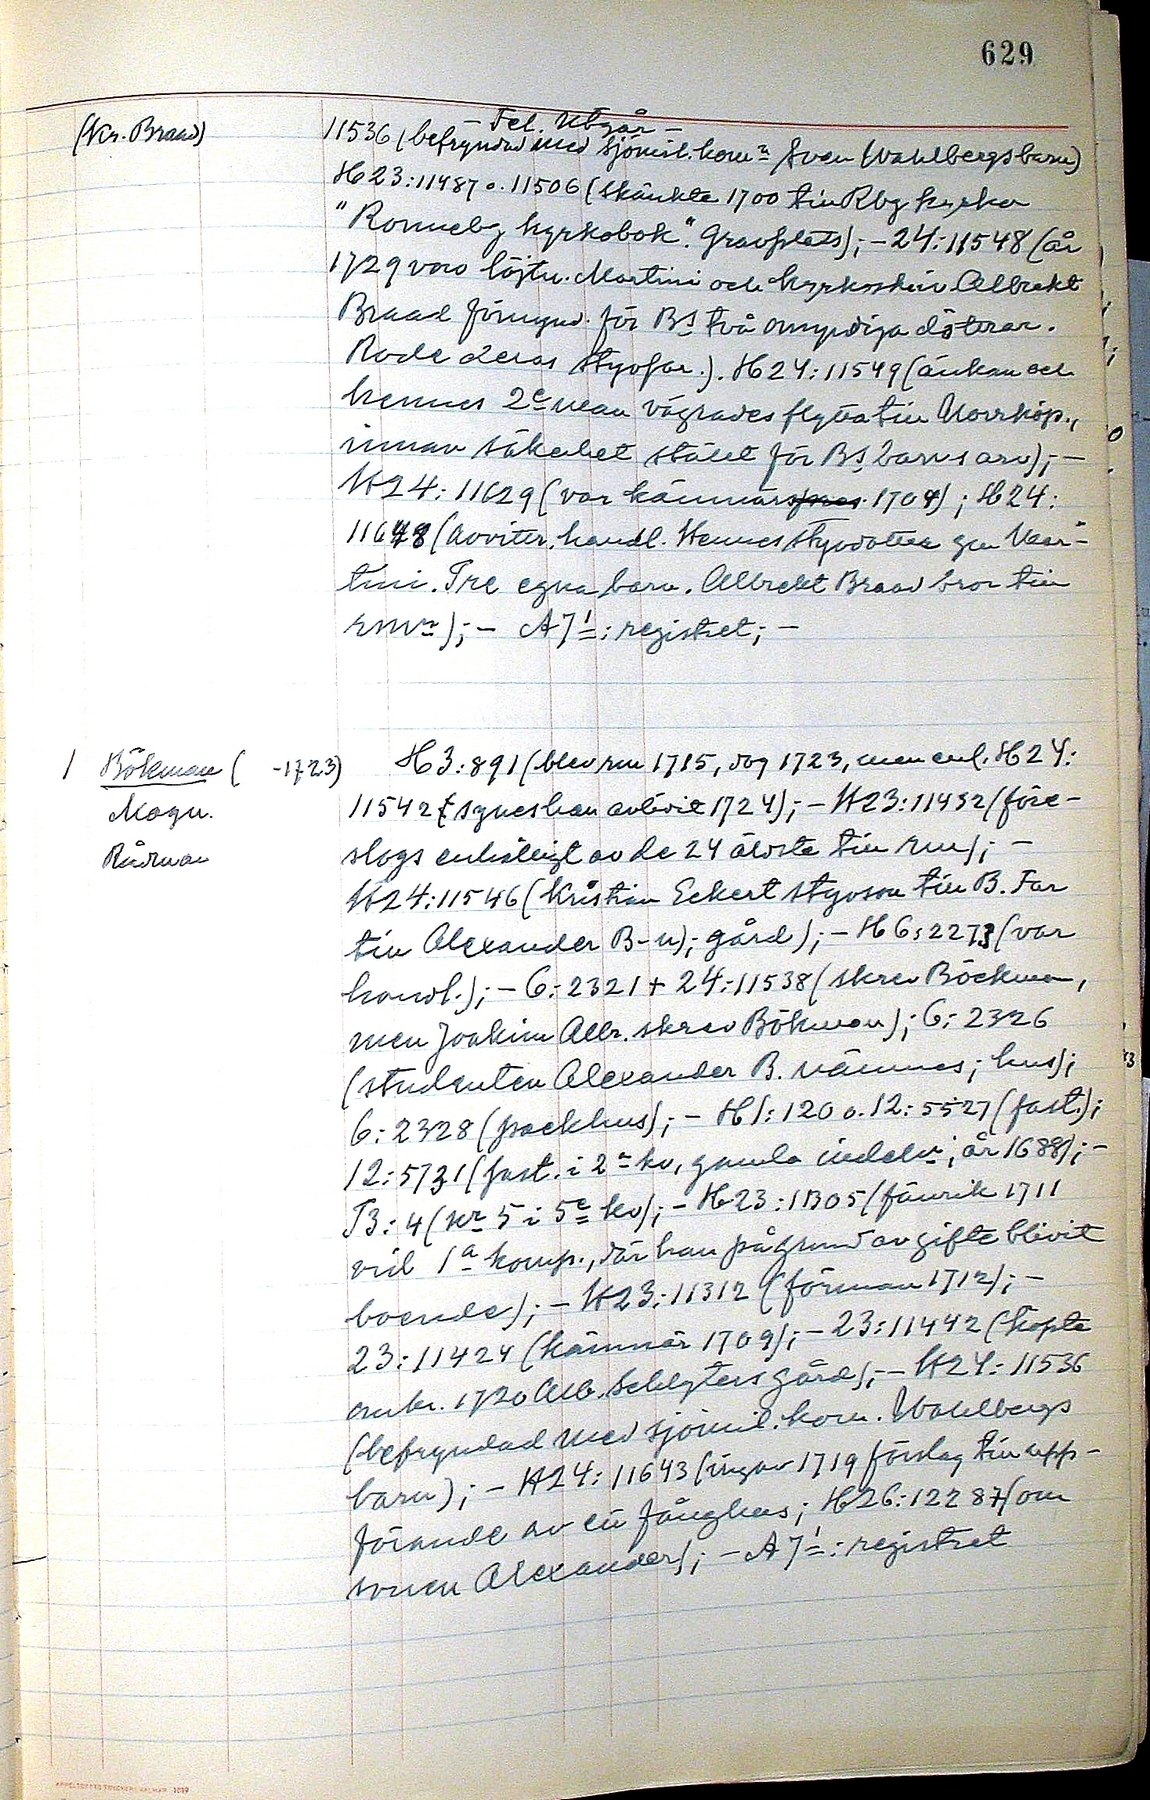 629
(Kr. Braad)
- Fel. Utgår -
11536 (befryndad med sjömil.komr Sven Wahlbergs barn)
H23:11487 o. 11506 (skänkte 1700 till Rby kyrka
"Ronneby kyrkobok". Gravplats); - 24:11548 (år
1729 voro löjtn. Martini och Albrekt
Braad förmynd. för Bs två omyndiga döttrar.
Rode deras styvfar.). H24:11549 (änkan och
hennes 2e man vägrades flytta till Norrköp.,
innan säkerhet ställt för Bs barns arv); -
H24:11629 (var kämnär 1704); H24:
11648 (avviter. handl. Hennes styvdotter gm Mar-
tini. Tre egna barn. Albrekt Braad bror till
rmn); - A71: registret; -
1 Bökman ( -1723)
Magn.
Rådman
H3:891 (blev rm 1715, dog 1723, men enl. H24:
11542 synes han avlidit 1724); - H23:11432 (före-
slogs enhälligt av de 24 äldste till rm); -
H24:11546 (Kristian Eckert styvson till B. Far
till Alexander B-n); gård); - H6:2273 (var
handl.); - 6:2321 + 24:11538 (skrev Böckman,
men Joakim Albr. skrev Bökman); 6:2326
(studenten Alexander B. nämnes; hus);
6:2328 (packhus); - H1:120 o. 12:5527 (fast.);
12:5731 (fast. i 2a kv, gamla indeln; år 1688); -
T3:4 (nr 5 i 5e kv); - H23:11305 (fänrik 1711
vid 1a komp., där han på grund av gifte blivit
boende); - H23:11312 (förman 1712); -
23:11424 (kämnär 1709); - 23:11442 (köpte
omkr. 1720 Alb. Schlyters gård); - H24:11536
(befryndad med sjömil.kom. Wahlbergs
barn); - H24:11643 (ingav 1719 förslag till upp-
förande av ett fånghus; H26:12287 (om
sonen Alexander); - A71: registret